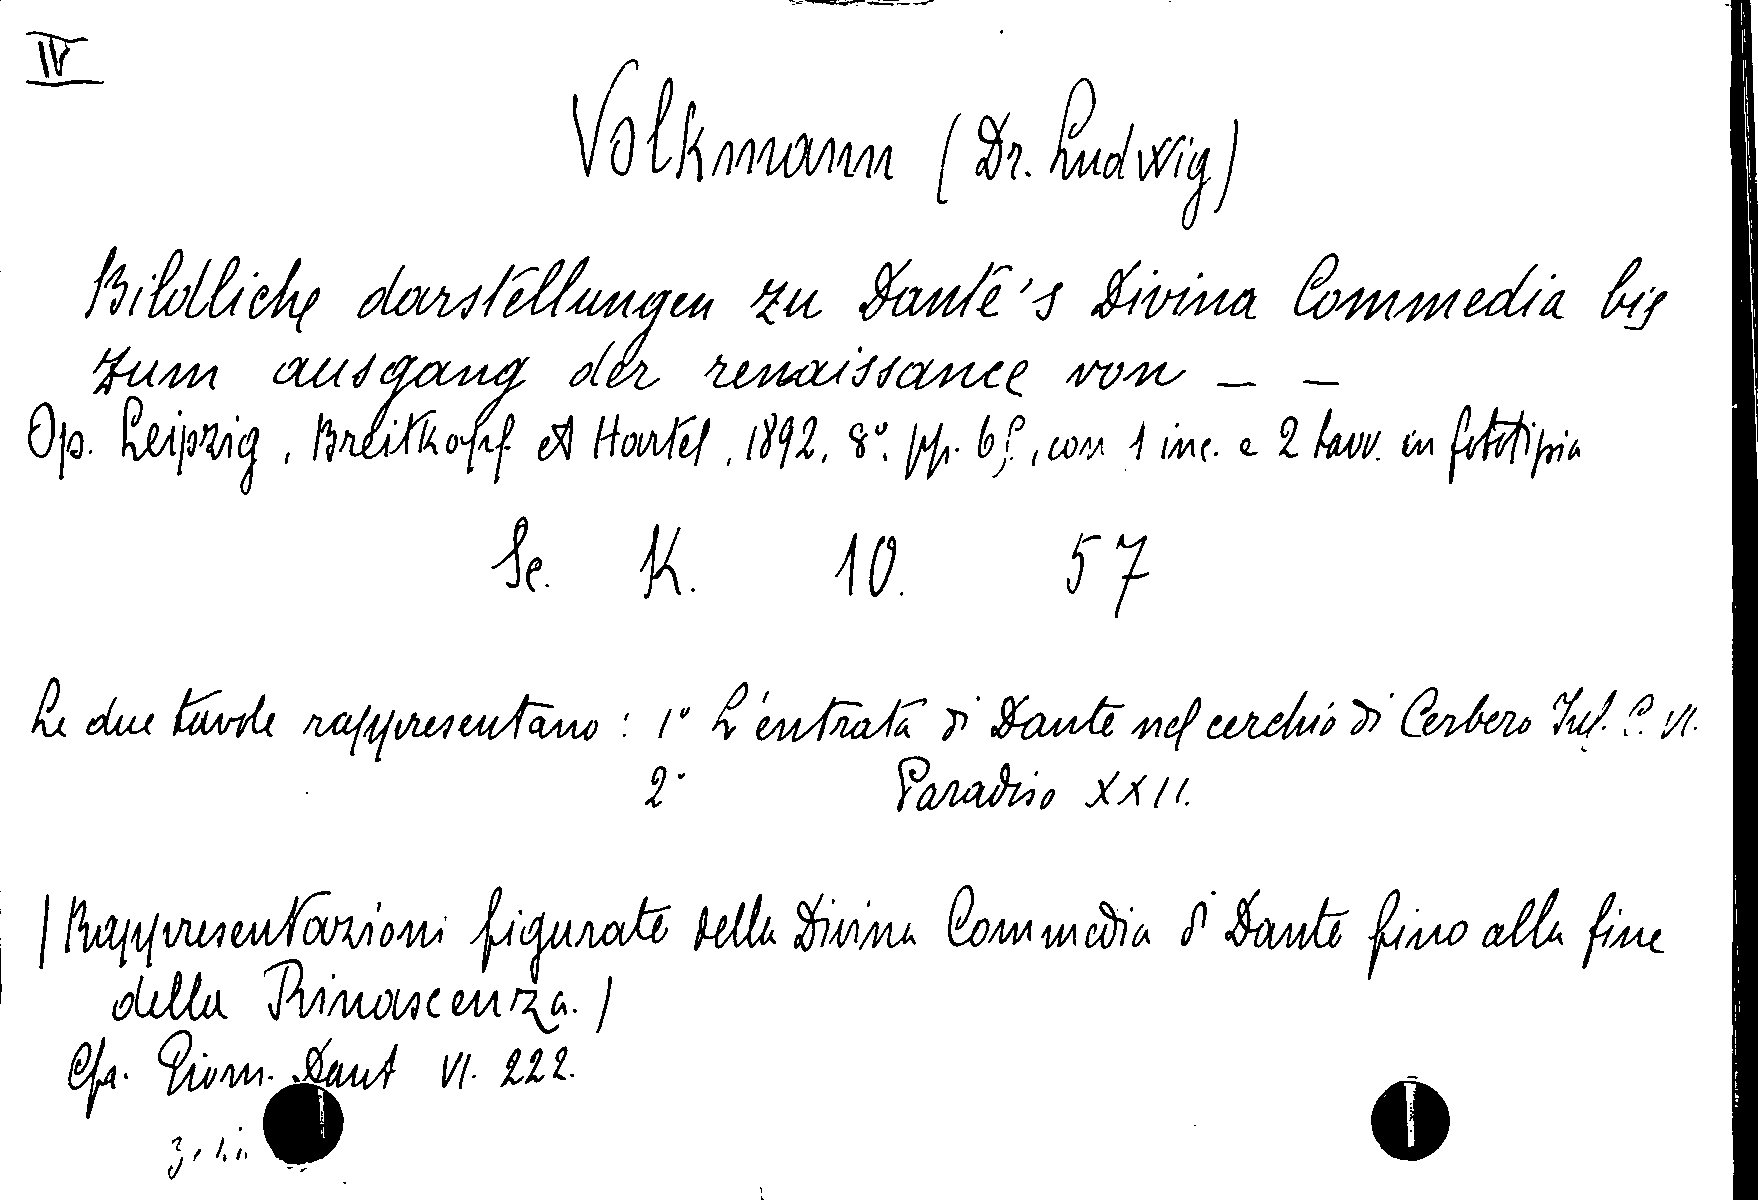 IV
Volkmann (Dr. Ludwig)
Bildliche darstellungen zu Dante's Divina Commedia bis
zum ausgang der renaissance von _ _
Op. Leipzig, Breitkopf et Hartel, 1892, 8° pp. 6, con 1 inc. e 2 tavv. in fototipia
Se. K. 10. 57
Le due tavole rappresentano: 1° L'entrata di Dante nel cerchio di Cerbero Inf. C. VI.
2° Paradiso XXII.
/ Rappresentazioni figurate della Divina Commedia di Dante fino alla fine
della Rinascenza. /
Cfr. Giorn. Dant VI. 222.